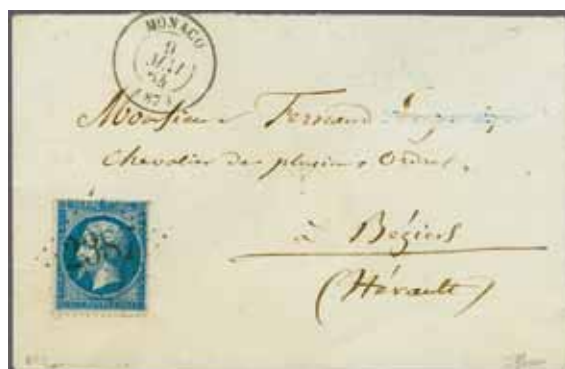 MONACO
9
MAI
64
(87)
Monsieur Fernand
Chevalier de plusieurs Ordres,
2387
à Béziers
(Hérault)